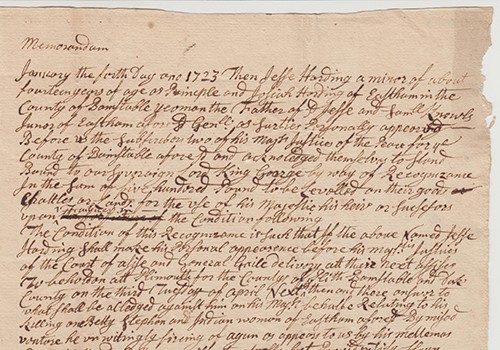 Memorandum
January the forth Day ano 1723 Then Jesse Harding a minor of about
fourteen years of age as Prinsiple and Josiah Harding of Eastham in the
County of Barnstable yeoman the Father of sd Jesse and Samll Knowls
Junor of Eastham afor sd Gentl: as Surties Personally appeared
Before us the Subscribers two of his Majts Justices of the Peace for ye
County of Barnstable aforesd and acknowledged themselves to Stand
Bound to our Sovraign Lord King George by way of Recognizance
In the Sum of five hundred Pound to be Levelled on their goods or
Chattles or Lands for the use of his Majestie his heirs or Sucsesors
upon the Condition following
The Condition of this Recognizance is such that if the above named Jesse
Harding Shall make his Personal appearence before his majtis Justices
of the Court of assise and General Goile delivery att their next assises
To be holdon att Plimouth for the County of Barnstable and
County on the third Tuesday of april Next then and there answer to
what shall be alledged against him on his Majts behalfe Relating to his
killing one Betty Stephen and Indian women of Eastham aforesd By misad
venture he unwitingly firing of a gun as appears to us by his